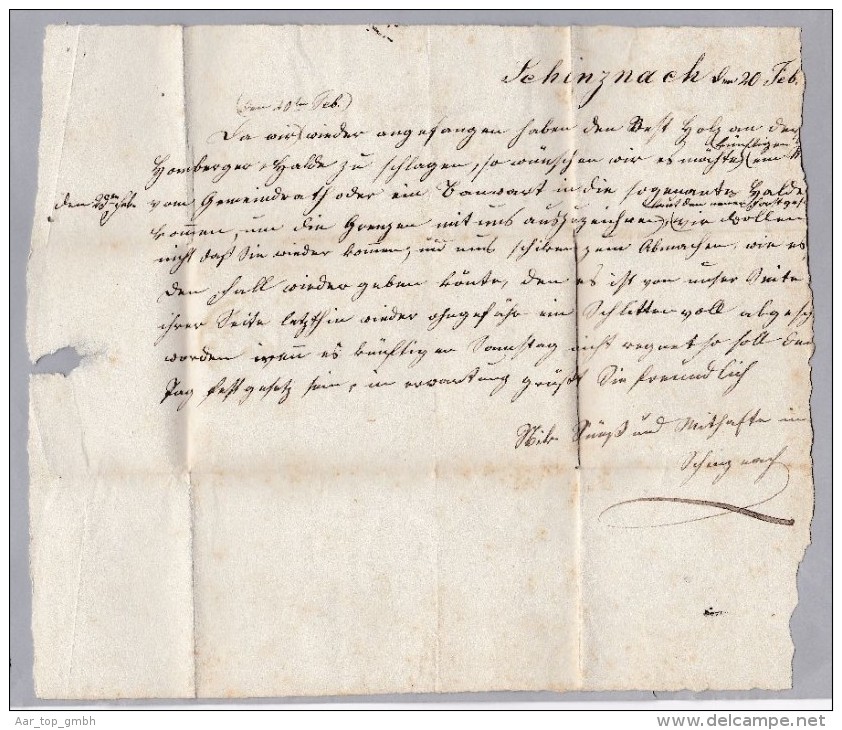 Schinznach den 20 Feb.
(den 20ten Feb.)
Da wir wieder angefangen haben den Rest Holz an der
künftigen
Homberger Halde zu schlagen, so wünschen wir es möchte ein
vom Gemeindrath oder ein Banwart in die sogenante Halde
den 29ten Feb.
laut dem neuen
kommen, um die Grenzen mit uns auszuzeichnen, wir wollen
nicht daß Sie wieder kommen, und uns schiken zum Abmachen, wie es
den Fall wieder geben könte, den es ist von unser Seite
ihrer Seite letzthin wieder ohngefähr ein Schlittenvoll abgesch
worden wenn es künftigen Samstag nicht regnet so soll der
Tag fest gesetz sein, in erwartung grüßt Sie freundlich
und Mithafte in
Schinznach
Aar_top_gmbh
www.delcampe.net